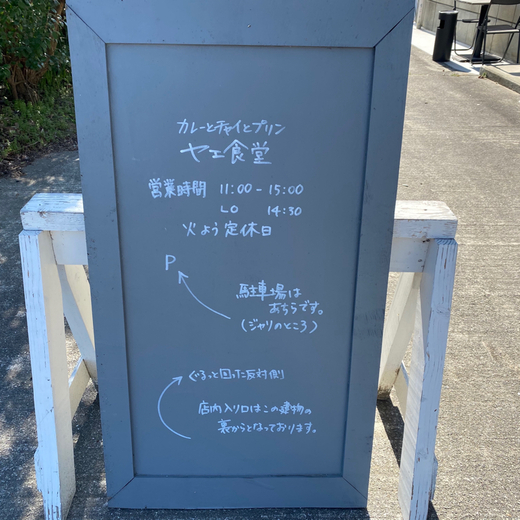 カレーとチャイとプリン
ヤエ食堂
営業時間 11:00-15:00
LO 14:30
火よう定休日
P
駐車場は
あちらです。
(ジャリのところ)
ぐるっと回った反対側
店内入り口はこの建物の
裏からとなっております。